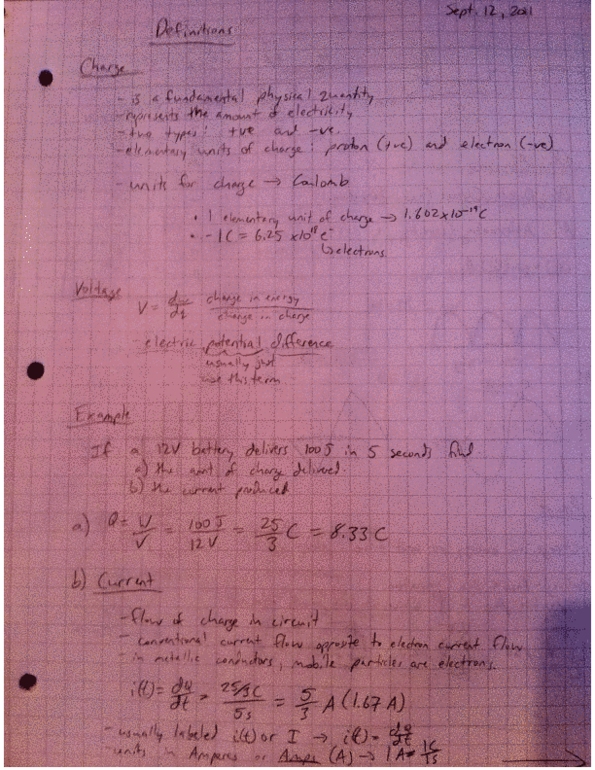 Sept. 12, 2011
Definitions
Charge
- is a fundamental physical quantity
- represents the amount of electricity
- two types: +ve and -ve.
- elementary units of charge: proton (+ve) and electron (-ve)
- units for charge → Coulomb
• 1 elementary unit of charge → 1.602x10⁻¹⁹C
• -1C = 6.25 x10¹⁸ e⁻
↳ electrons
Voltage
V = dw/dq change in energy / change in charge
- electric potential difference
usually just
use this term
Example
If a 12V battery delivers 100J in 5 seconds find
a) the amt of charge delivered
b) the current produced
a) Q = W/V = 100J/12V = 25/3 C = 8.33 C
b) Current
- flow of charge in circuit
- conventional current flow opposite to electron current flow
- in metallic conductors, mobile particles are electrons.
i(t) = dq/dt = 25/3C/5s = 5/3 A (1.67 A)
- usually labeled i(t) or I → i(t) = dq/dt
- units in Amperes or Amps (A) → 1A = 1C/1s